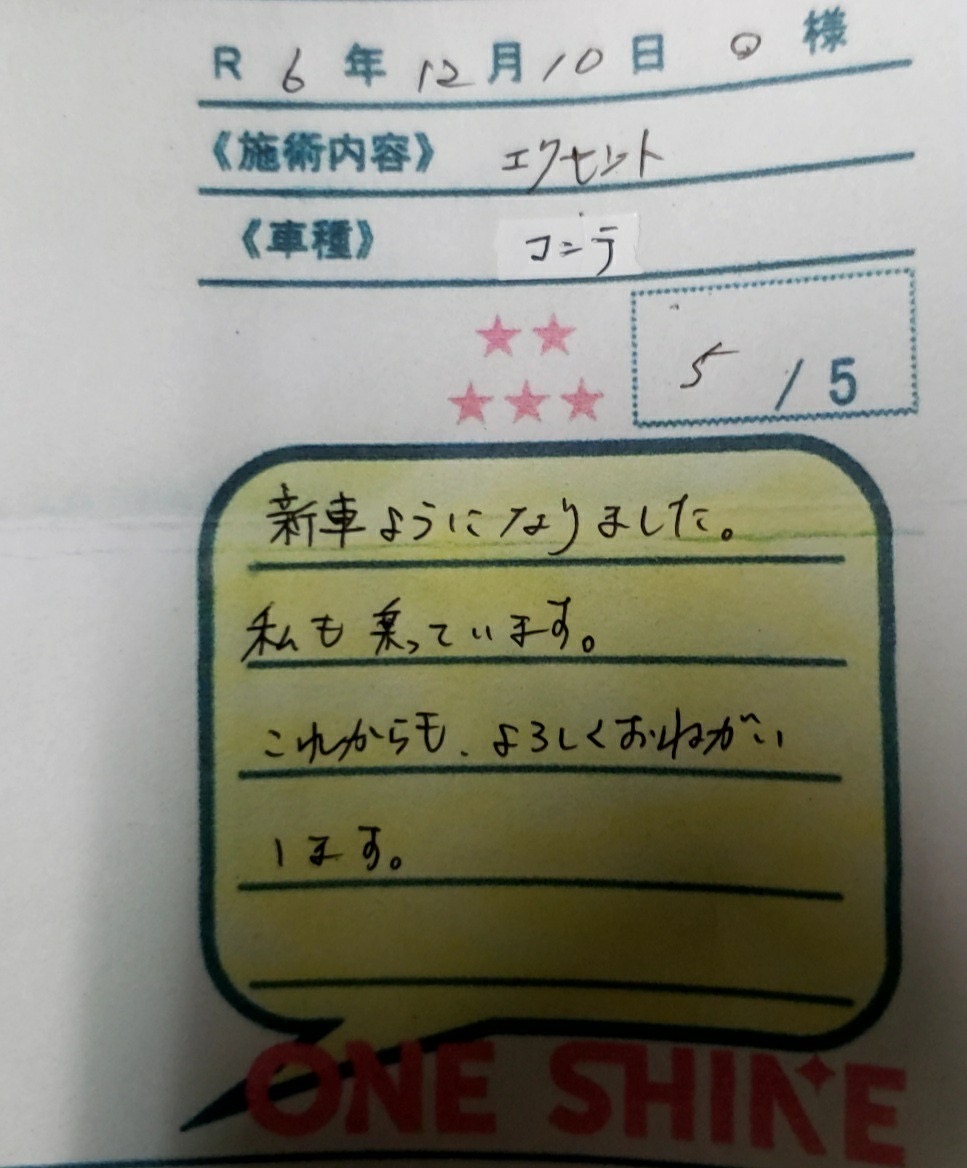 R 6 年 12 月 10 日 様
《施術内容》 エクセレント
《車種》 コンテ
★★
★★★
5 / 5
新車ようになりました。
私も乗っています。
これからも、よろしくおねがい
します。
ONE SHINE